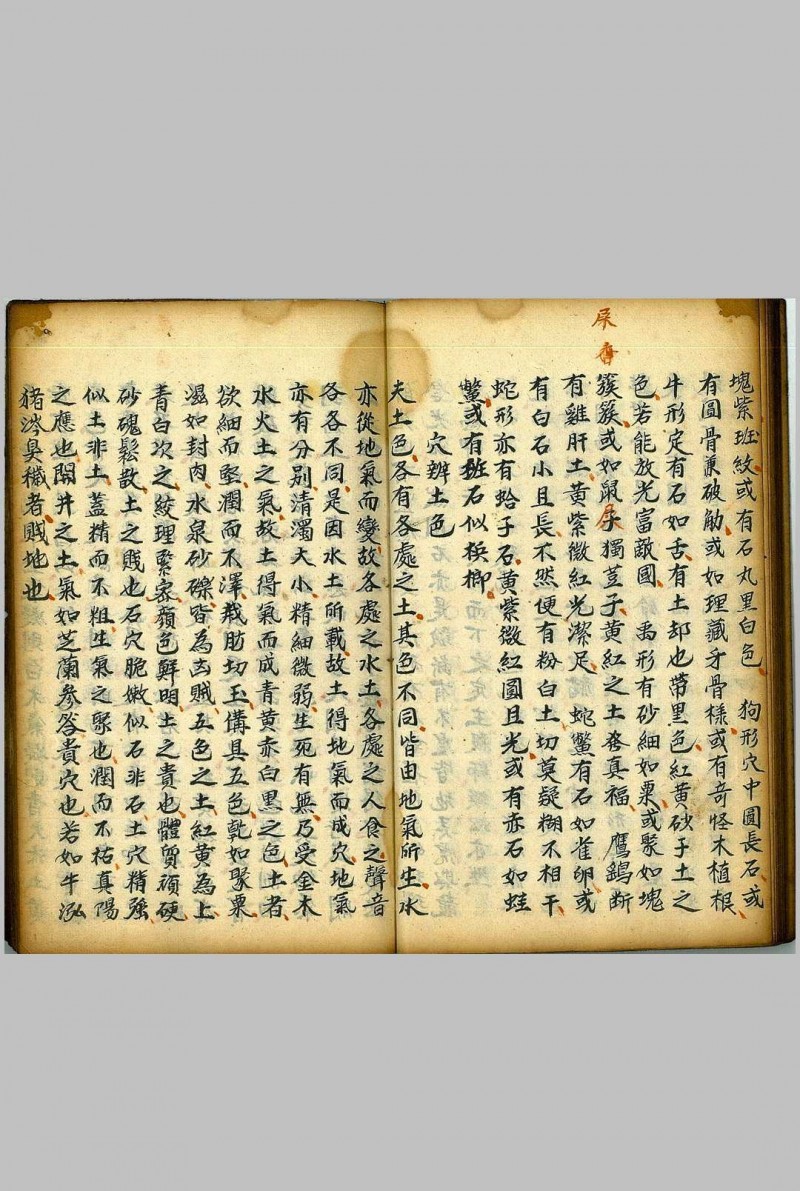 屎
塊紫班紋或有石丸里白色 狗形穴中圓長石或
有圓骨兼破觔或如理藏牙骨樣或有奇怪木植根
牛形定有石如舌有土却也帶黑色紅黃砂于土之
色若能放光富敵國 禽形有砂細如粟或聚如塊
簇簇或如鼠屎獨荳子黃紅之土發真福 鷹鷂斷
有雞肝土黃紫微紅光潔足 蛇鱉有石如雀卵或
有白石小且長不然便有粉白土切莫疑糊不相干
蛇形亦有蛤子石黃紫微紅圓且光或有赤石如蛙
鱉或有班石似梹榔
穴辨土色
夫土色各有各處之土其色不同皆由地氣所生水
亦從地氣而變故各處之水土各處之人食之聲音
各各不同是因水土所載故土得地氣而成穴地氣
亦有分別清濁大小精細微弱生死有無乃受金木
水火土之氣故土得氣而成青黃赤白黑之色土者
欲細而堅潤而不澤裁肪切玉備具五色乾如聚粟
濕如封肉水泉砂礫皆為凶賊五色之土紅黃為上
青白次之紋理緊密顏色鮮明土之貴也體質頑硬
砂磈鬆散土之賤也石穴脆嫩似石非石土穴精強
似土非土蓋精而不粗生氣之聚也潤而不枯真陽
之應也開井之土氣如芝蘭參苓貴穴也若如牛泓
猪涔臭穢者賤地也